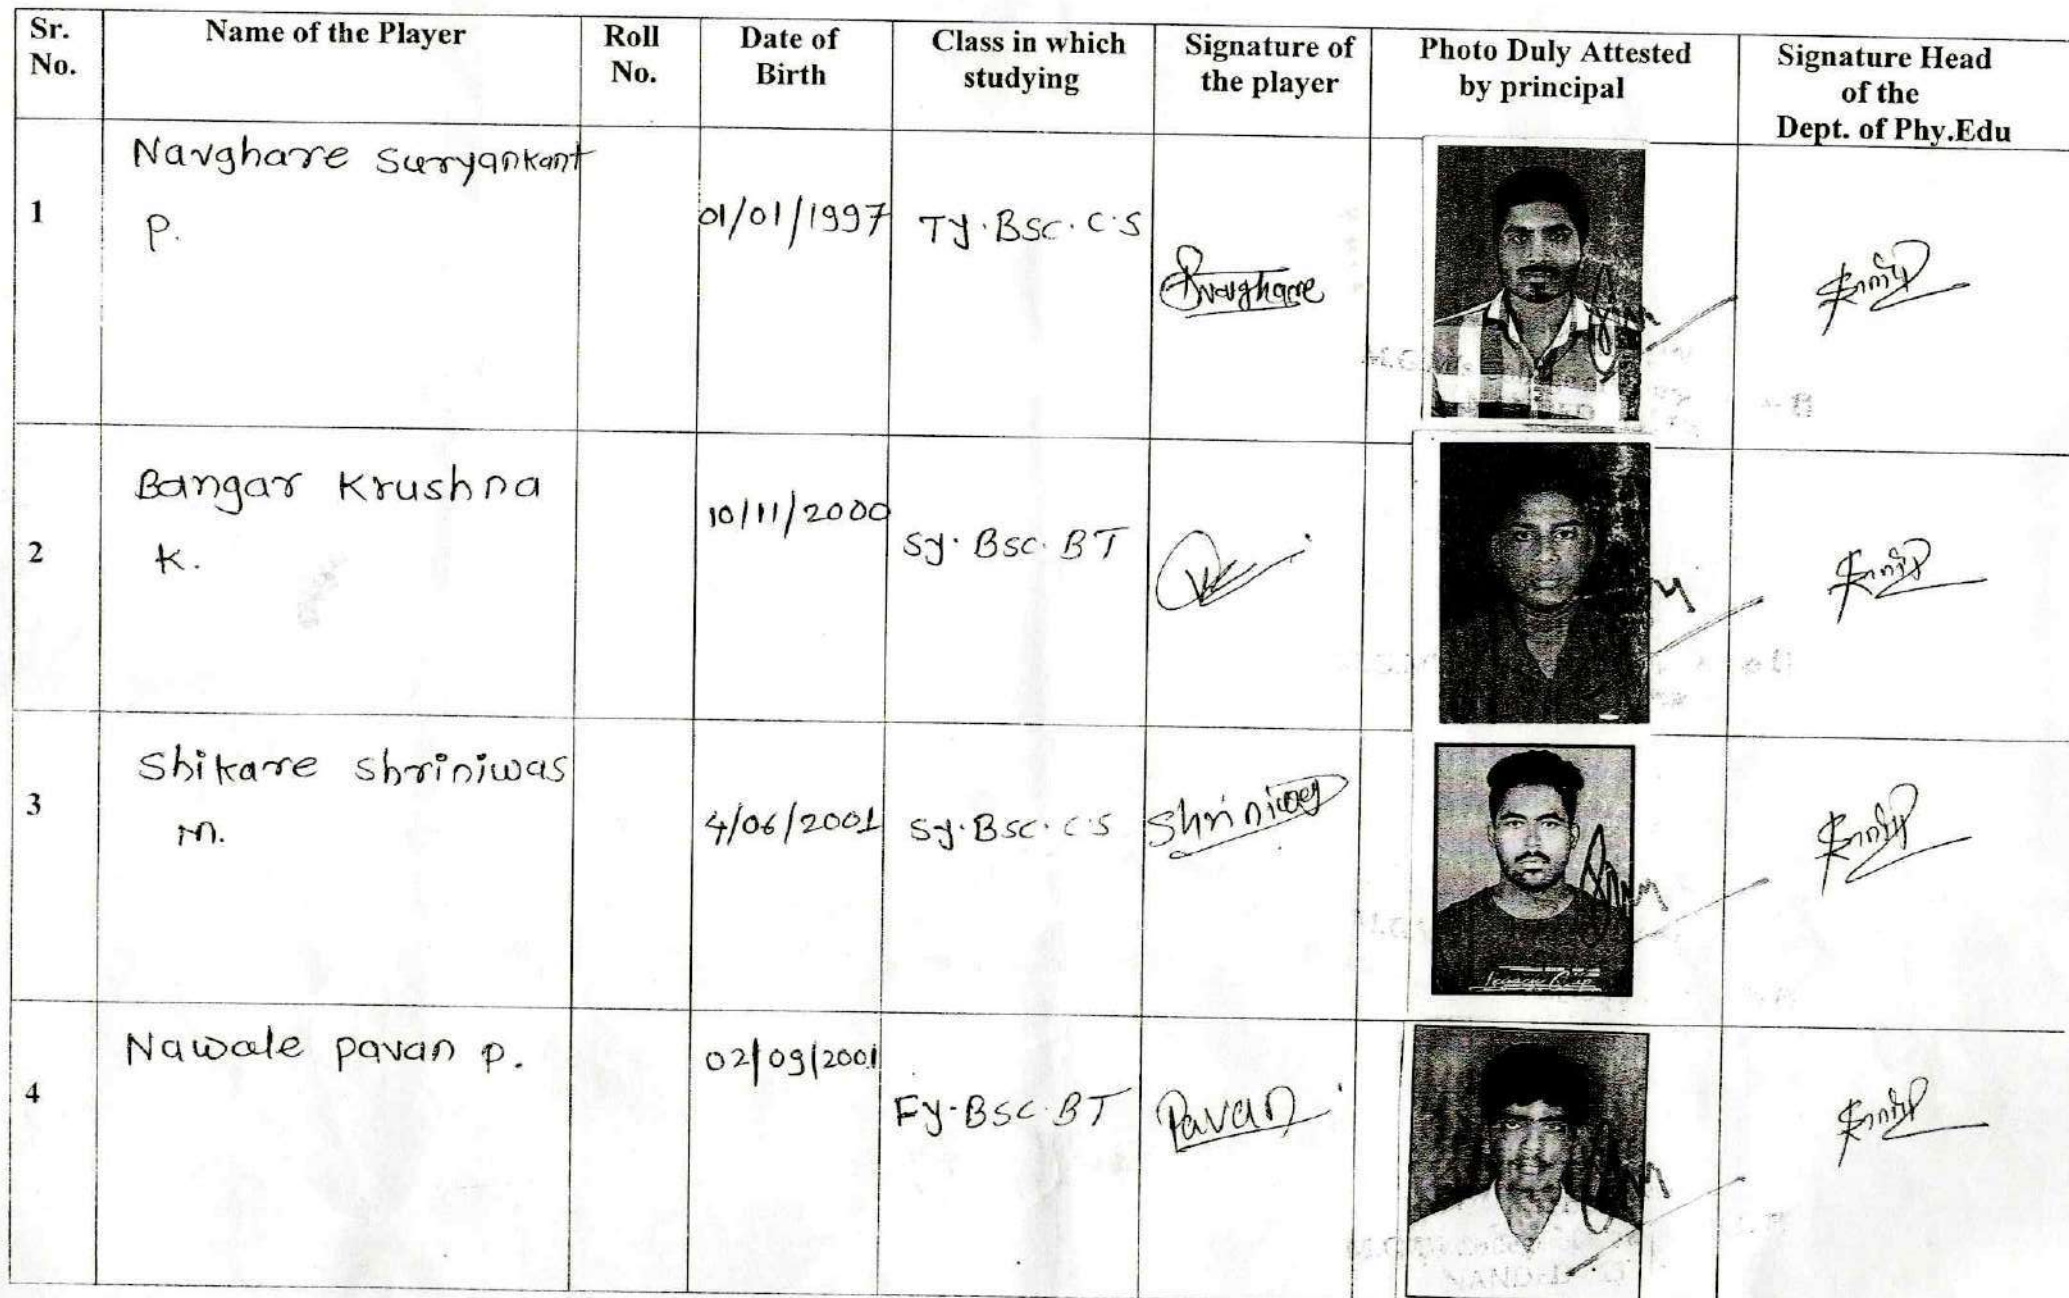 Sr. No.
Name of the Player
Roll No.
Date of Birth
Class in which studying
Signature of the player
Photo Duly Attested by principal
Signature Head of the Dept. of Phy.Edu
1
Navghare Suryankant
P.
01/01/1997
Ty.Bsc.C.S
Snavghare
2
Bangar Krushna
K.
10/11/2000
Sy.Bsc.BT
3
Shikare Shriniwas
M.
4/06/2001
Sy.Bsc.C.S
Shriniwas
4
Nawale Pavan P.
02/09/2001
Fy.Bsc.BT
Pavan